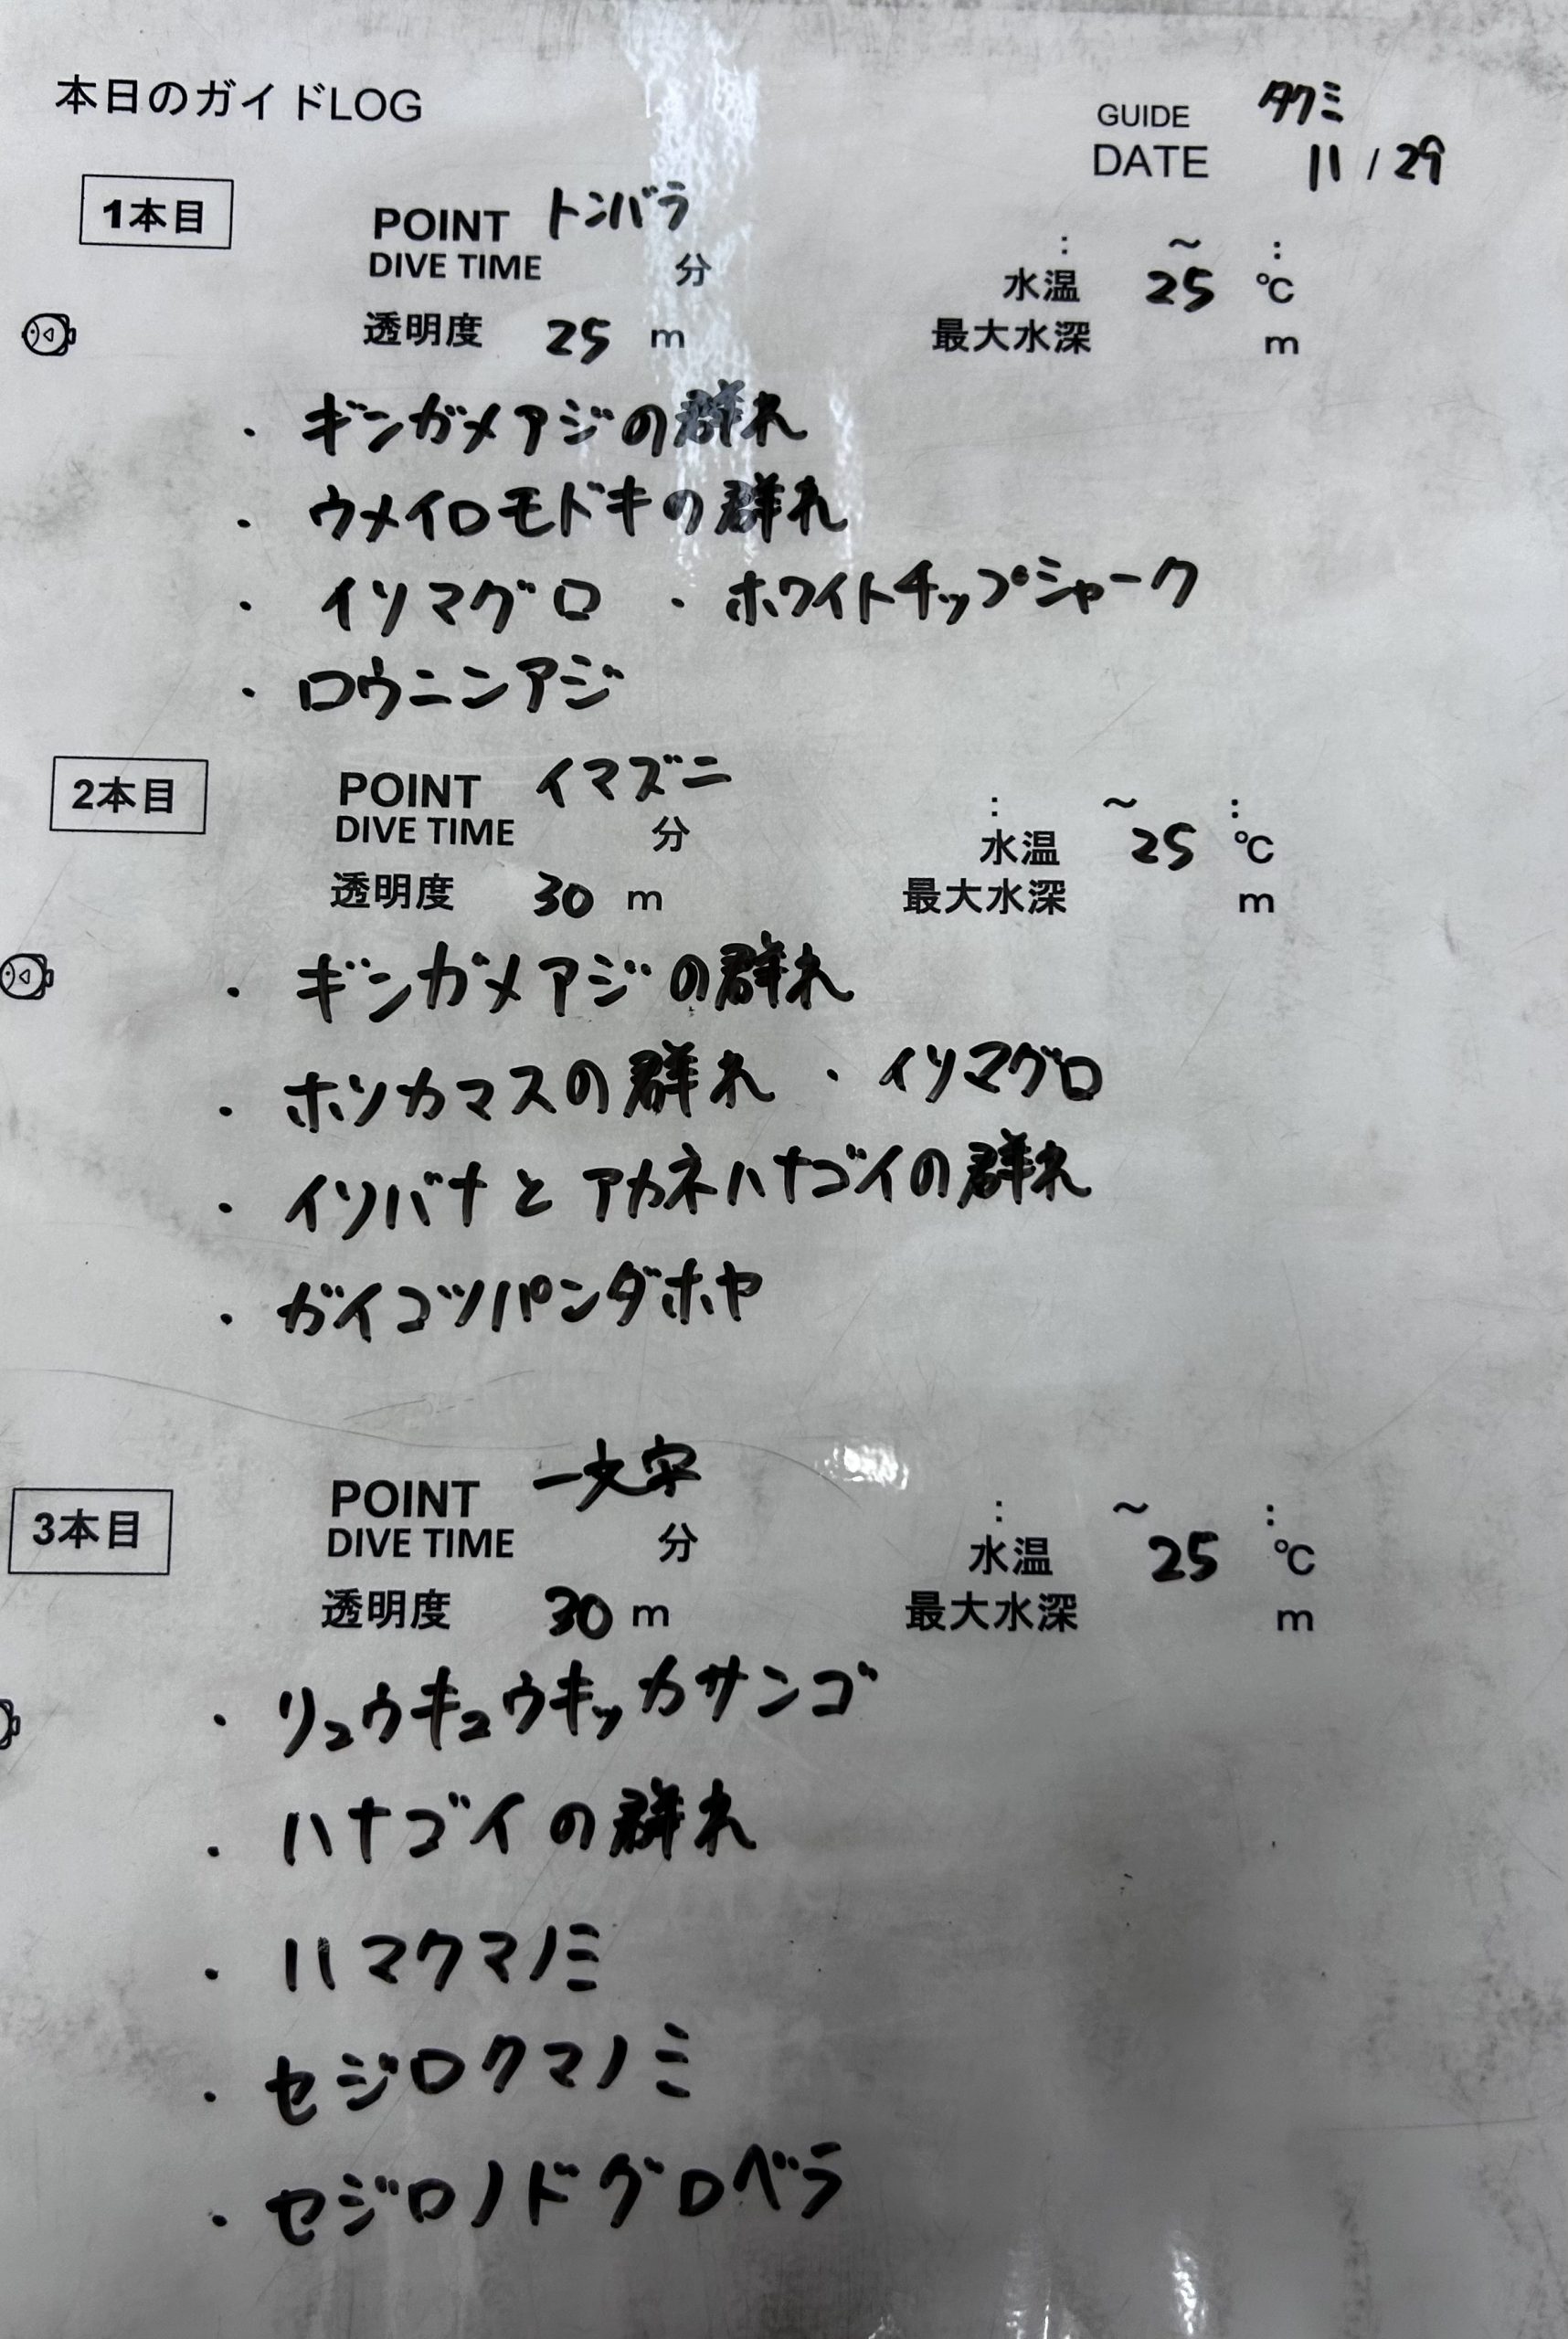 本日のガイドLOG
GUIDE タクミ
DATE 11 / 29
1本目 POINT トンバラ
: ～ :
DIVE TIME 分 水温 25 ℃
透明度 25 m 最大水深 m
・ギンガメアジの群れ
・ウメイロモドキの群れ
・イソマグロ ・ホワイトチップシャーク
・ロウニンアジ
2本目 POINT イマズニ
: ～ :
DIVE TIME 分 水温 25 ℃
透明度 30 m 最大水深 m
・ギンガメアジの群れ
・ホソカマスの群れ ・イソマグロ
・イソバナとアカネハナゴイの群れ
・ガイコツパンダホヤ
3本目 POINT 一文字
: ～ :
DIVE TIME 分 水温 25 ℃
透明度 30 m 最大水深 m
・リュウキュウキッカサンゴ
・ハナゴイの群れ
・ハマクマノミ
・セジロクマノミ
・セジロノドグロベラ